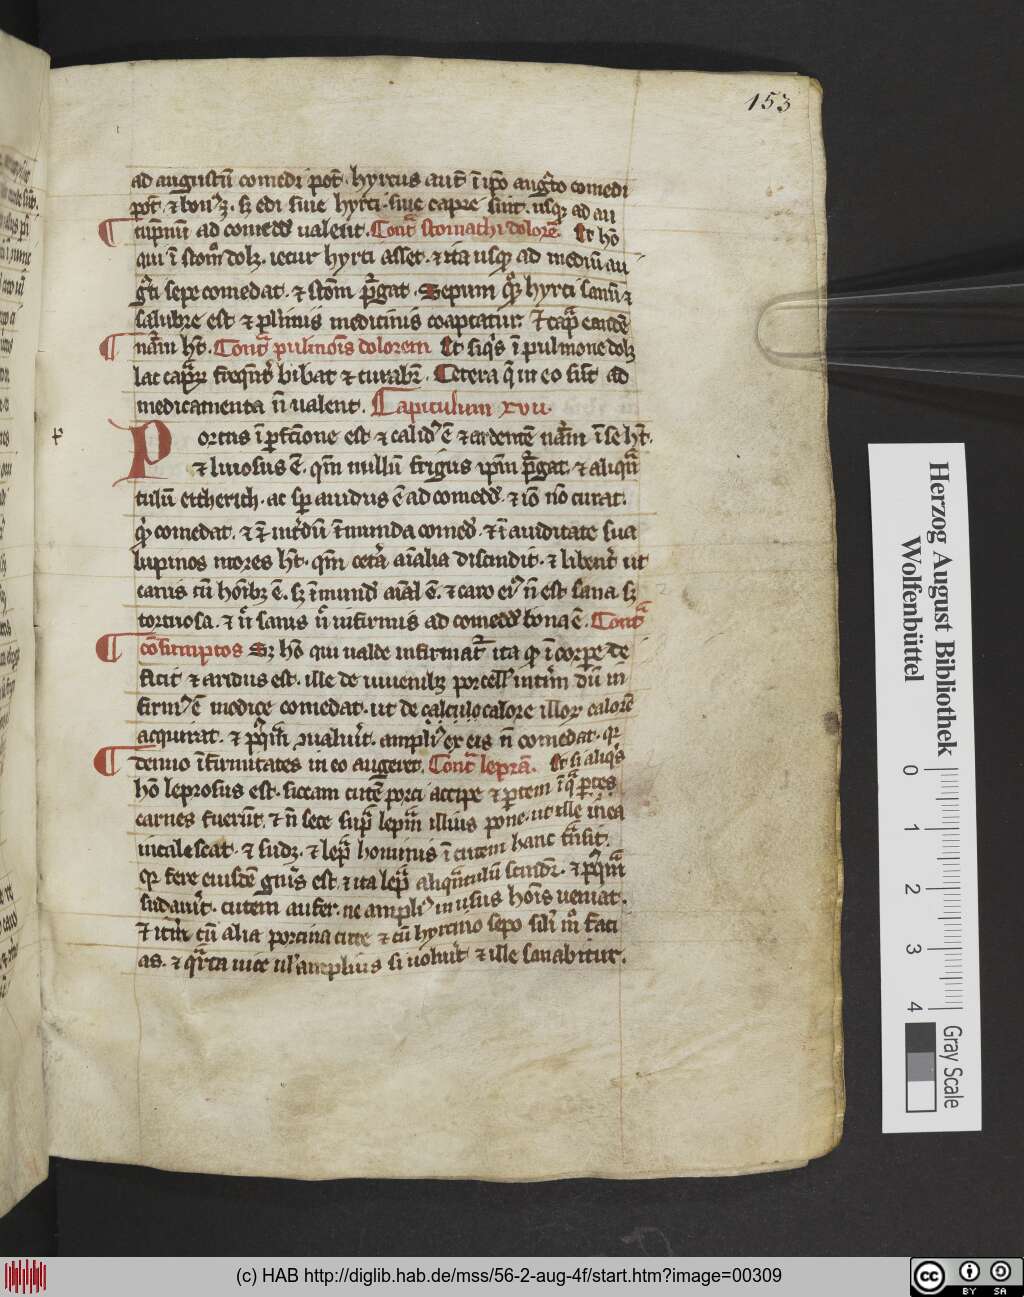 153
ad augustū comedi pot̄. hyrcus aut̄ ī ip̄o auḡto comedi
pot̄. ⁊ bonꝰ ꝫ. sꝫ edi siue hyrci. siue capre sint. usqꝫ ad au
tūpnū ad comedēd ualent. Contͣ stomachi dolorē. Et hō
qui ī stom̄ dolꝫ. iecur hyrci asset. ⁊ ita usqꝫ ad mediū au
gͥsti sepe comedat. ⁊ stom̄ pͥgat. Sepum qͦꝫ hyrci sanū ⁊
salubre est ⁊ plͥmis medicinis coaptatur. Et capͣ eandē
nͣam hꝫ. Contͣ pulmoīs dolorem Et siqͥs ī pulmone dolꝫ
lac capͣrꝫ freqn̄t bibat ⁊ curabr̄. Cetera q̄ in eo sūt ad
medicamenta n̄ ualent. Capitulum xvii.
Porcus ī ꝑfcīone est ⁊ calidꝰ ē ⁊ ardentē nͣam ī se hꝫ.
⁊ liuosus ē. qm̄ nullū frigus ipm̄ pͥgat. ⁊ aliqͣn
tulū eitherich. ac sꝑ auidus ē ad comedēd. ⁊ iō nō curat.
qͥd comedat. ⁊ int̄dū īmunda comed̄. ⁊ ī auiditate sua
lupinos mores hꝫ. qm̄ cetͣa aīalia discindit. ⁊ libent̄ ut
canis cū hoībꝫ ē. sꝫ īmundū aīal ē. ⁊ caro eiꝰ n̄ est sana sꝫ
tortuosa. ⁊ n̄ sanis n̄ infirmis ad comedēd bona ē. Contͣ
cōsumptos Sꝫ hō qui ualde infirmat̄ ita qͦ ī corꝑe de
ficit ⁊ aridus est. ille de iuuenilꝫ porcell̄ intim̄ dū in
firmꝰ ē modice comedat. ut de calculo calore illoꝝ calorē
acquirat. ⁊ pꝰqͣ ꝯualuit. ampliꝰ ex eis n̄ comedat. qꝛ
denuo īfirmitates in eo augeret. Contͣ leprā. Et si aliqͥs
hō leprosus est. siccam cutē porci accipe ⁊ ꝑtem ī qͣ ꝑtes
carnes fuerūt. ⁊ n̄ sece supͣ leprͣam illius pone. ut ille in ea
incalescat. ⁊ sudꝫ. ⁊ lepͣ hominis ī cutem hanc tͣnsit.
qꝛ fere eiusdē gn̄is est. ⁊ ita lepͣ aliqͣntulū scindr̄. ⁊ pꝰqͣm
sudauit. cutem aufer. ne ampliꝰ in usus hoīs ueniat.
Et it̄m cū alia porcina cute ⁊ cū hyrcino sepo silī m̄ faci
as. ⁊ qͣrta uice ul̄ amplius si uoluit ⁊ ille sanabitur.
Herzog August Bibliothek
Wolfenbüttel
0 1 2 3 4
Gray Scale
(c) HAB http://diglib.hab.de/mss/56-2-aug-4f/start.htm?image=00309
cc BY SA